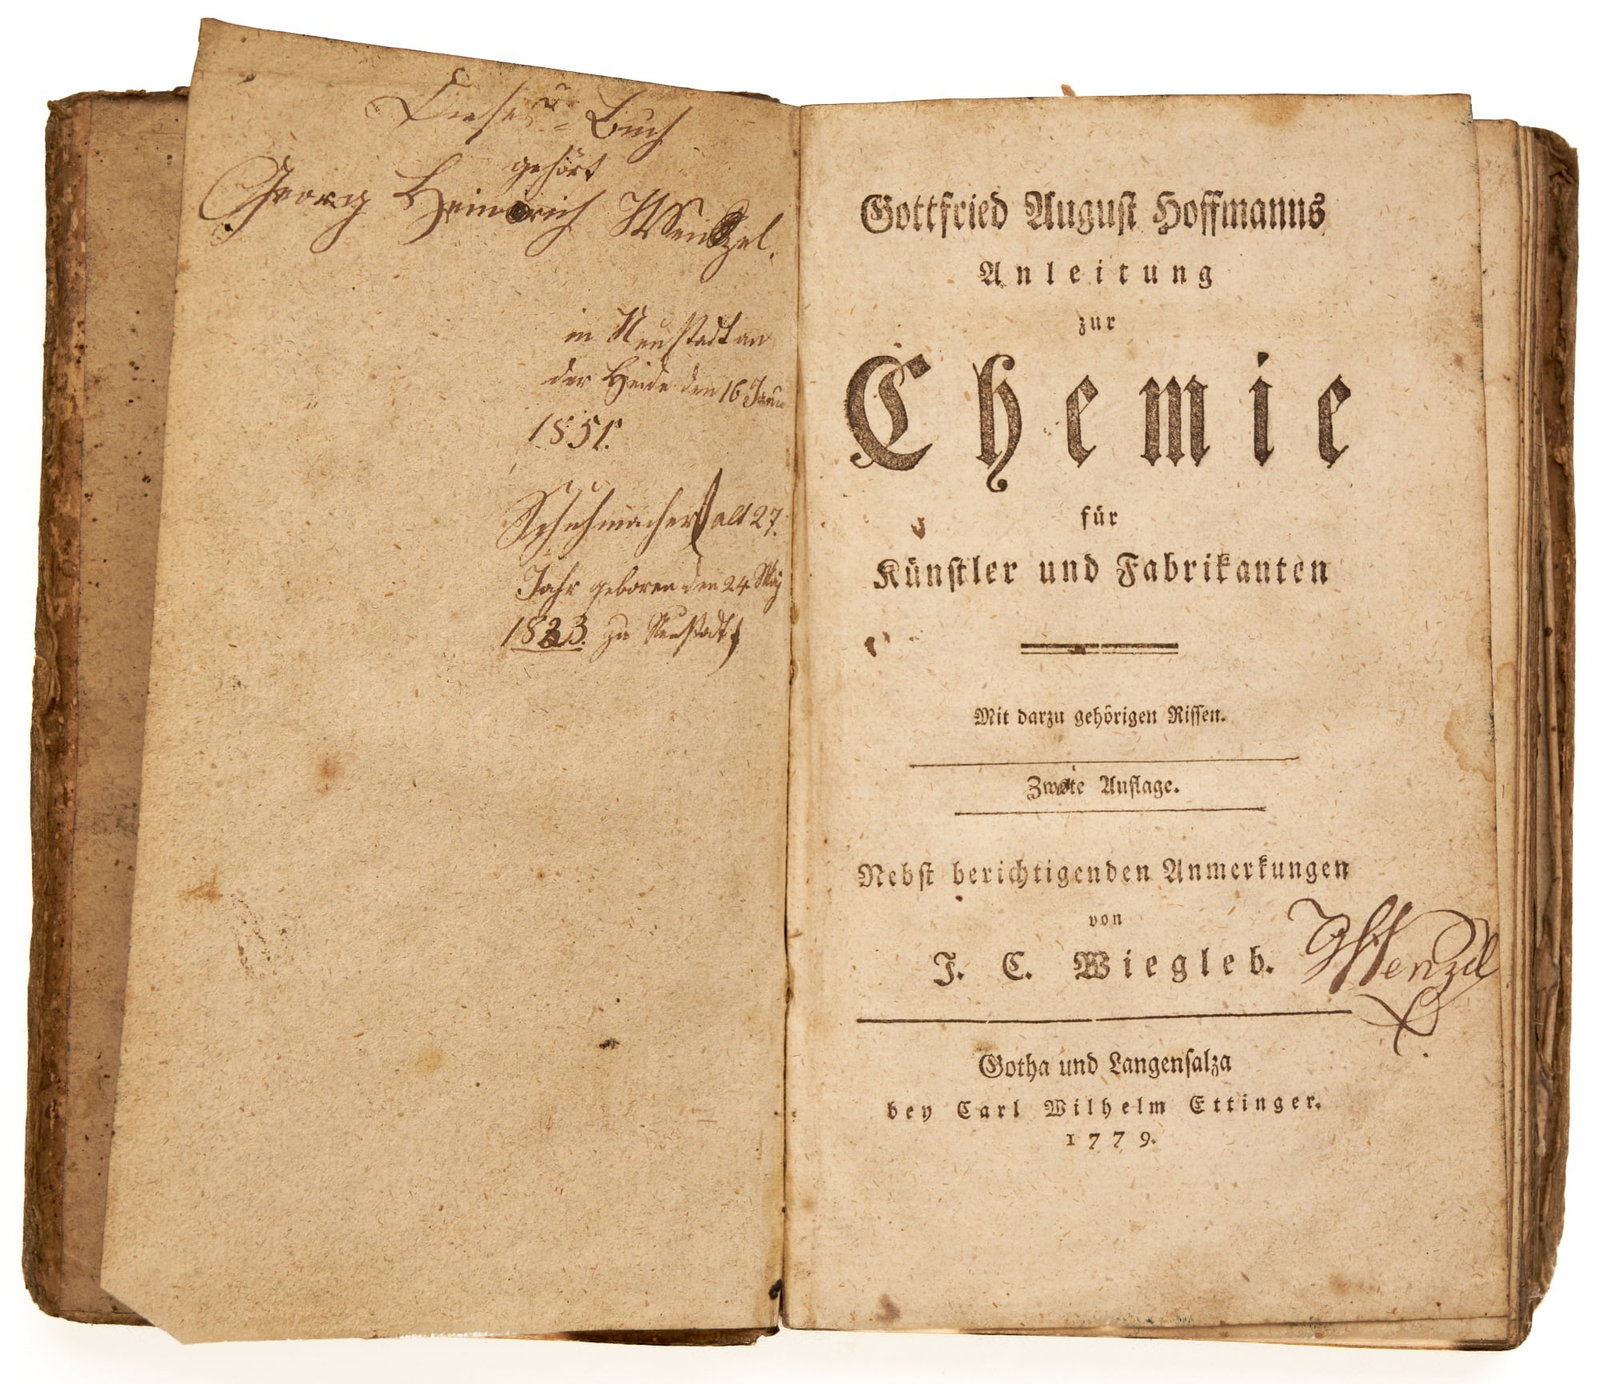 Dieses Buch
gehört
Georg Heinrich Wenzel.
in Neustadt an
der Heide den 16 Janu
1851.
Schuhmacher alt 27.
Jahr geboren den 24 May
1823. zu Neustadt
Gottfried August Hoffmanns
Anleitung
zur
Chemie
für
Künstler und Fabrikanten
Mit darzu gehörigen Rissen.
Zwote Auflage.
Nebst berichtigenden Anmerkungen
von
J. C. Wiegleb.
Wenzel
Gotha und Langensalza
bey Carl Wilhelm Ettinger.
1779.